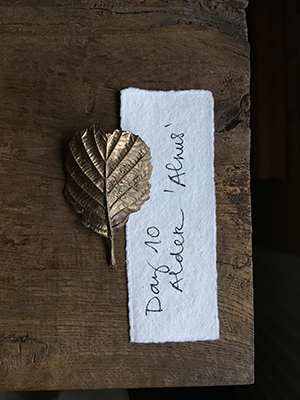 Day 10
Alder 'Alnus'